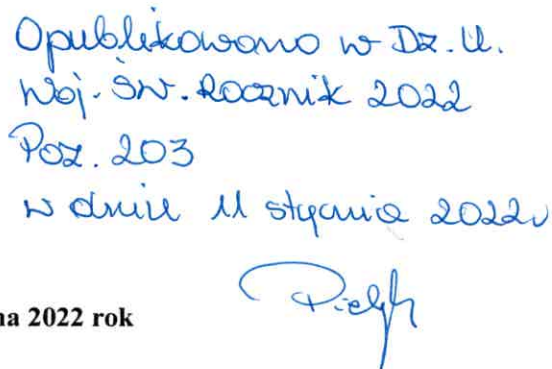 Opublikowano w Dz. U.
Woj. Św. Rocznik 2022
Poz. 203
w dniu 11 stycznia 2022r
na 2022 rok